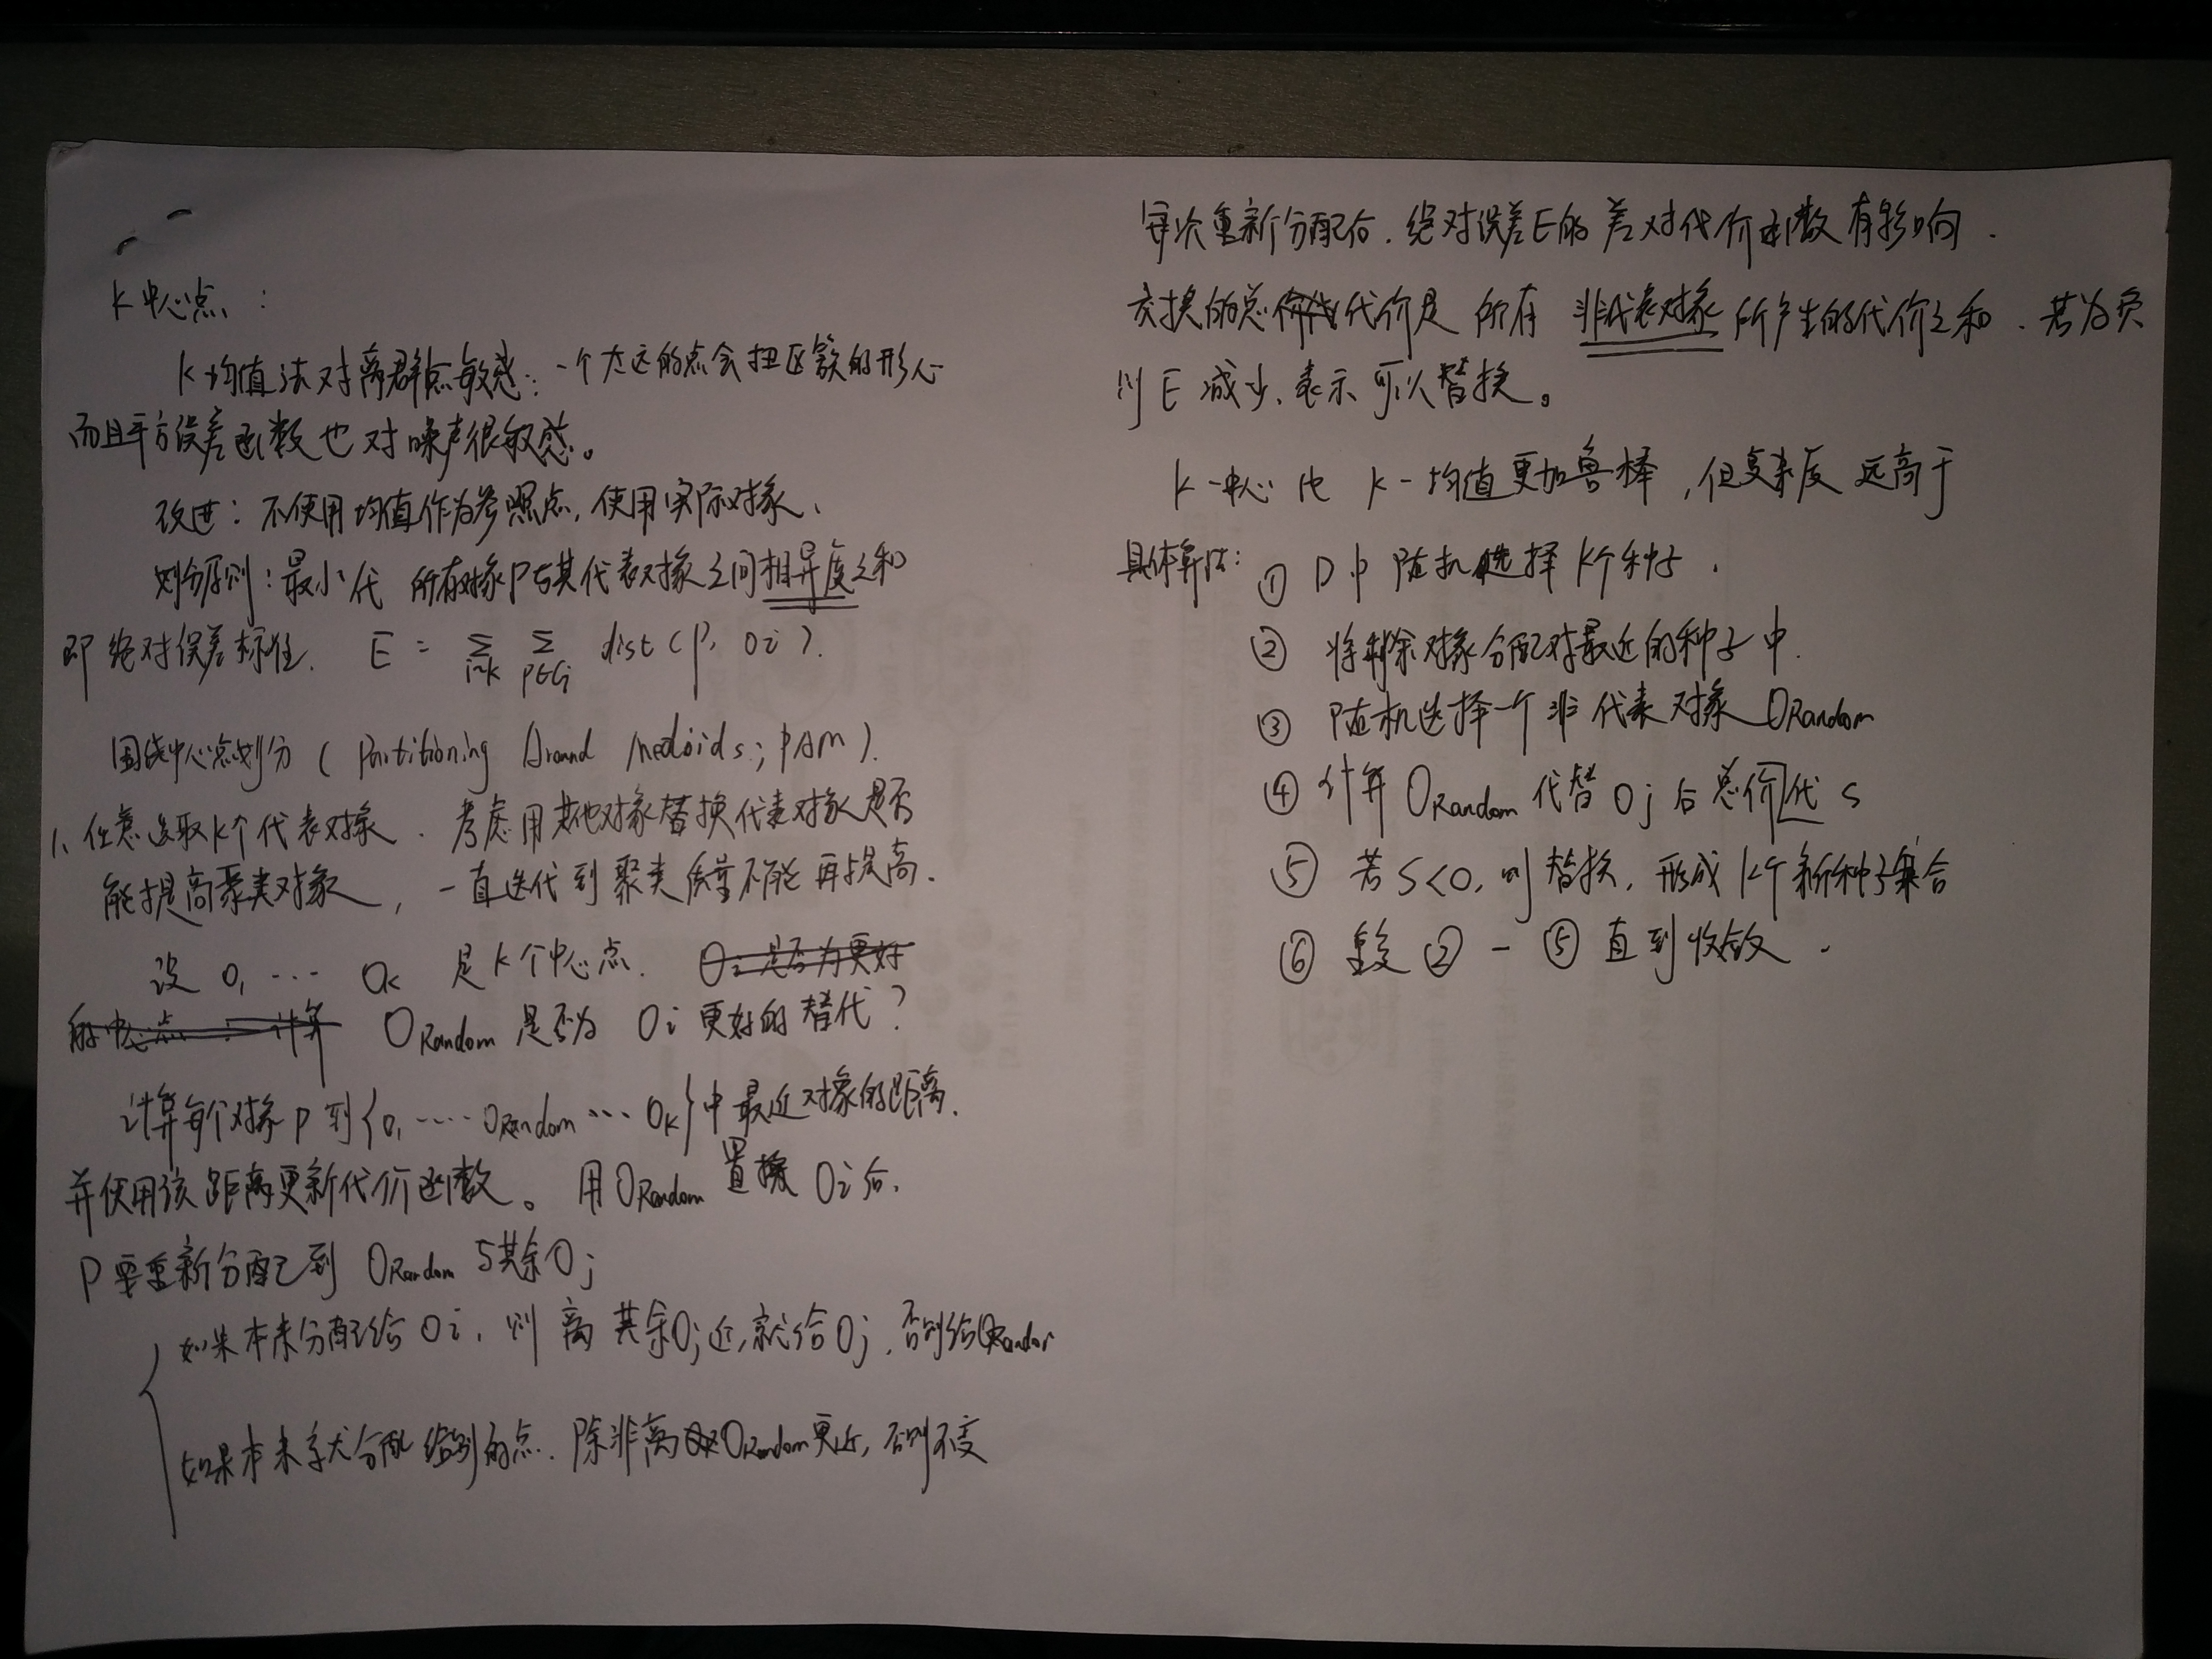 k中心点：
k均值法对离群点敏感：一个太远的点会扭区簇的形心
而且平方误差函数也对噪声很敏感。
改进：不使用均值作为参照点，使用实际对象、
划分原则：最小代 所有对象P与其代表对象之间相异度之和
即绝对误差标准. E = Σ i~k Σ p∈Ci dist(p, Oi).
围绕中心点划分 ( Partitioning Around Medoids; PAM).
1、任意选取k个代表对象．考虑用其他对象替换代表对象是否
能提高聚类对象，一直迭代到聚类质量不能再提高.
设 O1 ... Ok 是k个中心点. Oi 是否为更好
的中心点. 计算 ORandom 是否为 Oi 更好的替代？
计算每个对象P到{O1 .... ORandom ... Ok}中最近对象的距离.
并使用该距离更新代价函数。用ORandom 置换 Oi后.
P要重新分配到 ORandom 与其余Oj
如果本来分配给Oi, 则离其余Oj近, 就给Oj, 否则给ORandom
如果本来就分配给别的点. 除非离ORandom更近, 否则不变
每次重新分配后. 绝对误差E的差对代价函数有影响.
交换的总代价是所有非代表对象所产生的代价之和. 若为负
则E减少, 表示可以替换。
k-中心比k-均值更加鲁棒, 但复杂度远高于
具体算法：① D中随机选择k个种子.
② 将剩余对象分配对最近的种子中.
③ 随机选择一个非代表对象 ORandom
④ 计算 ORandom 代替 Oj 后总价代 S
⑤ 若 S<0, 则替换, 形成k个新种子集合
⑥ 重复 ② - ⑤ 直到收敛.